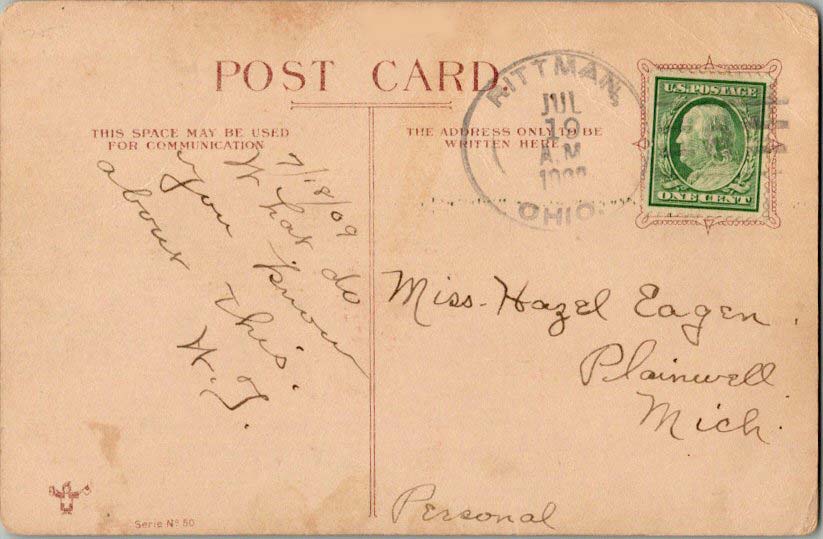 POST CARD
THIS SPACE MAY BE USED
FOR COMMUNICATION
THE ADDRESS ONLY TO BE
WRITTEN HERE
RITTMAN,
JUL
19
A.M
OHIO.
U.S. POSTAGE
ONE CENT
7/18/09
What do
you know
about this.
Miss. Hazel Eagen.
Plainwell
Mich.
Personal
Serie No 50